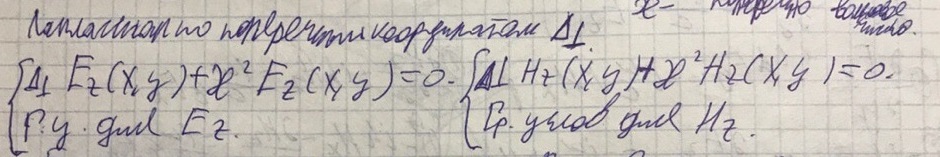 Лапласиан по поперечным координатам Δ⊥.
ϰ - поперечно волновое число.
{Δ⊥ Ez(x,y)+ϰ² Ez(x,y)=0. {Δ⊥ Hz(x,y)+ϰ² Hz(x,y)=0.
Г.у. для Ez. Гр. услов для Hz.